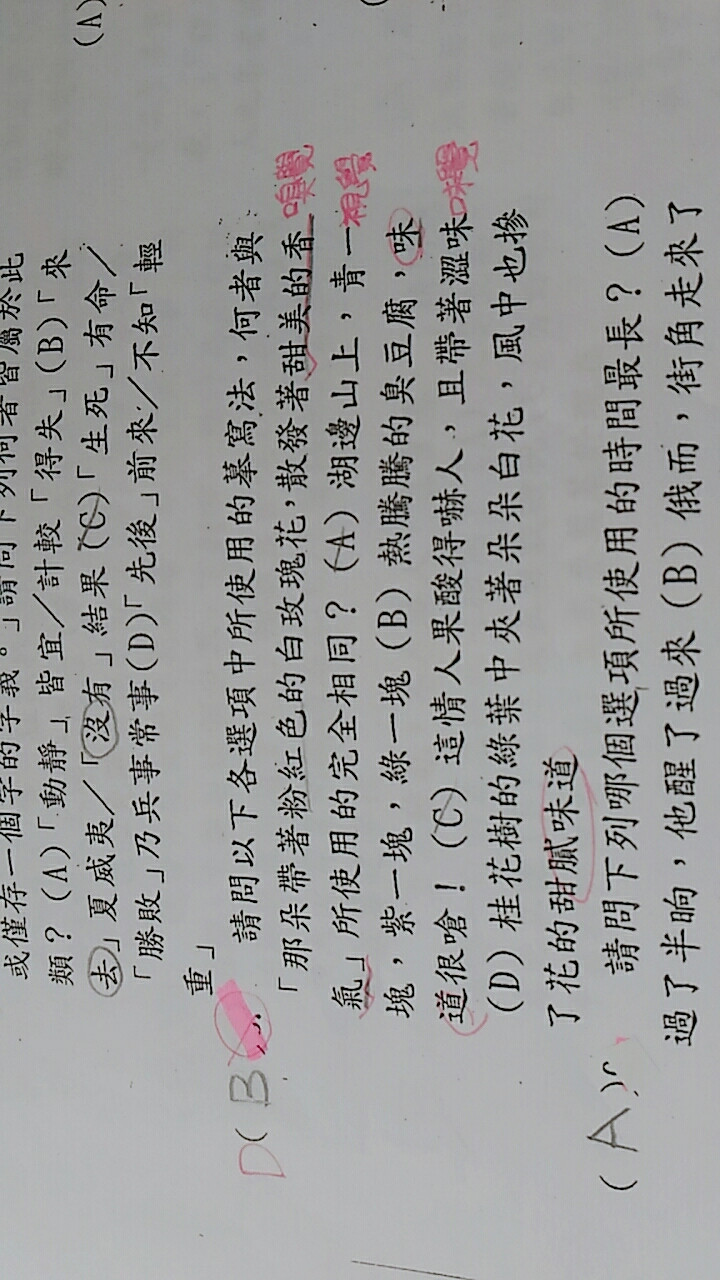 (A)
或僅存一個字的字義。」請問下列何者皆屬於此
類？(A)「動靜」皆宜／計較「得失」(B)「來
去」夏威夷／「沒有」結果(C)「生死」有命／
「勝敗」乃兵事常事(D)「先後」前來／不知「輕
重」
D(B)
請問以下各選項中所使用的摹寫法，何者與
「那朵帶著粉紅色的白玫瑰花，散發著甜美的香
嗅覺
氣」所使用的完全相同？(A)湖邊山上，青一
視覺
塊，紫一塊，綠一塊(B)熱騰騰的臭豆腐，味
道很嗆！(C)這情人果酸得嚇人，且帶著澀味
味覺
(D)桂花樹的綠葉中夾著朵朵白花，風中也摻
了花的甜膩味道
(A)
請問下列哪個選項所使用的時間最長？(A)
過了半晌，他醒了過來(B)俄而，街角走來了